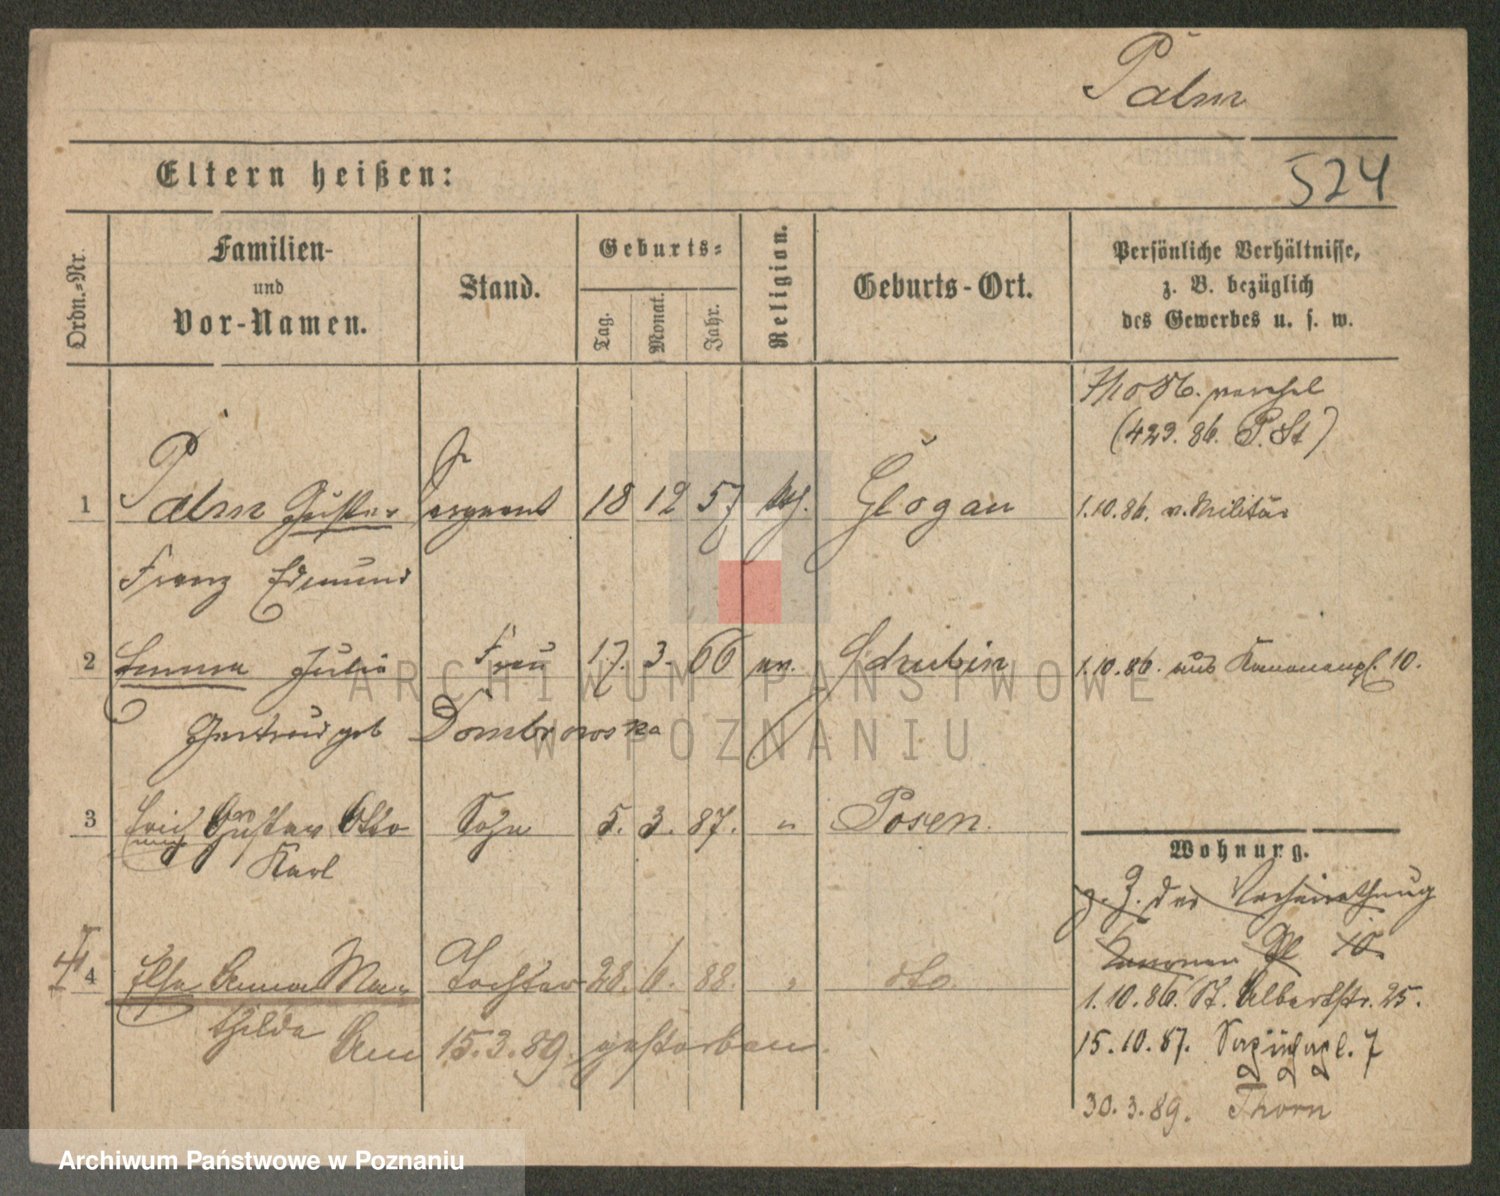 Palm
Eltern heißen:
524
Ordn.-Nr.
Familien-
und
Vor-Namen.
Stand.
Geburts-
Tag.
Monat.
Jahr.
Religion.
Geburts-Ort.
Persönliche Verhältnisse,
z. B. bezüglich
des Gewerbes u. s. w.
(423. 86. P. St)
1 Palm Gustav Sergeant 18 12 57 Glogau 1.10.86. v. Militär
Franz Edmund
2 Emma Julie Frau 17. 3. 66 ev. Schubin 1.10.86. aus Kanonenpl. 10.
Gertrud geb Dombrowska
3 Erich Gustav Otto Sohn 5. 3. 87. " Posen.
Karl
Wohnung.
z. Z. der Verheirathung
Kanonen Pl 10.
4 Else Anna Ma Tochter 28. 6. 88. " dto.
thilde
1.10.86. St. Albertstr. 25.
Am 15.3.89. gestorben.
15.10.87. 7
30.3.89. Thorn
ARCHIWUM PAŃSTWOWE
W POZNANIU
Archiwum Państwowe w Poznaniu